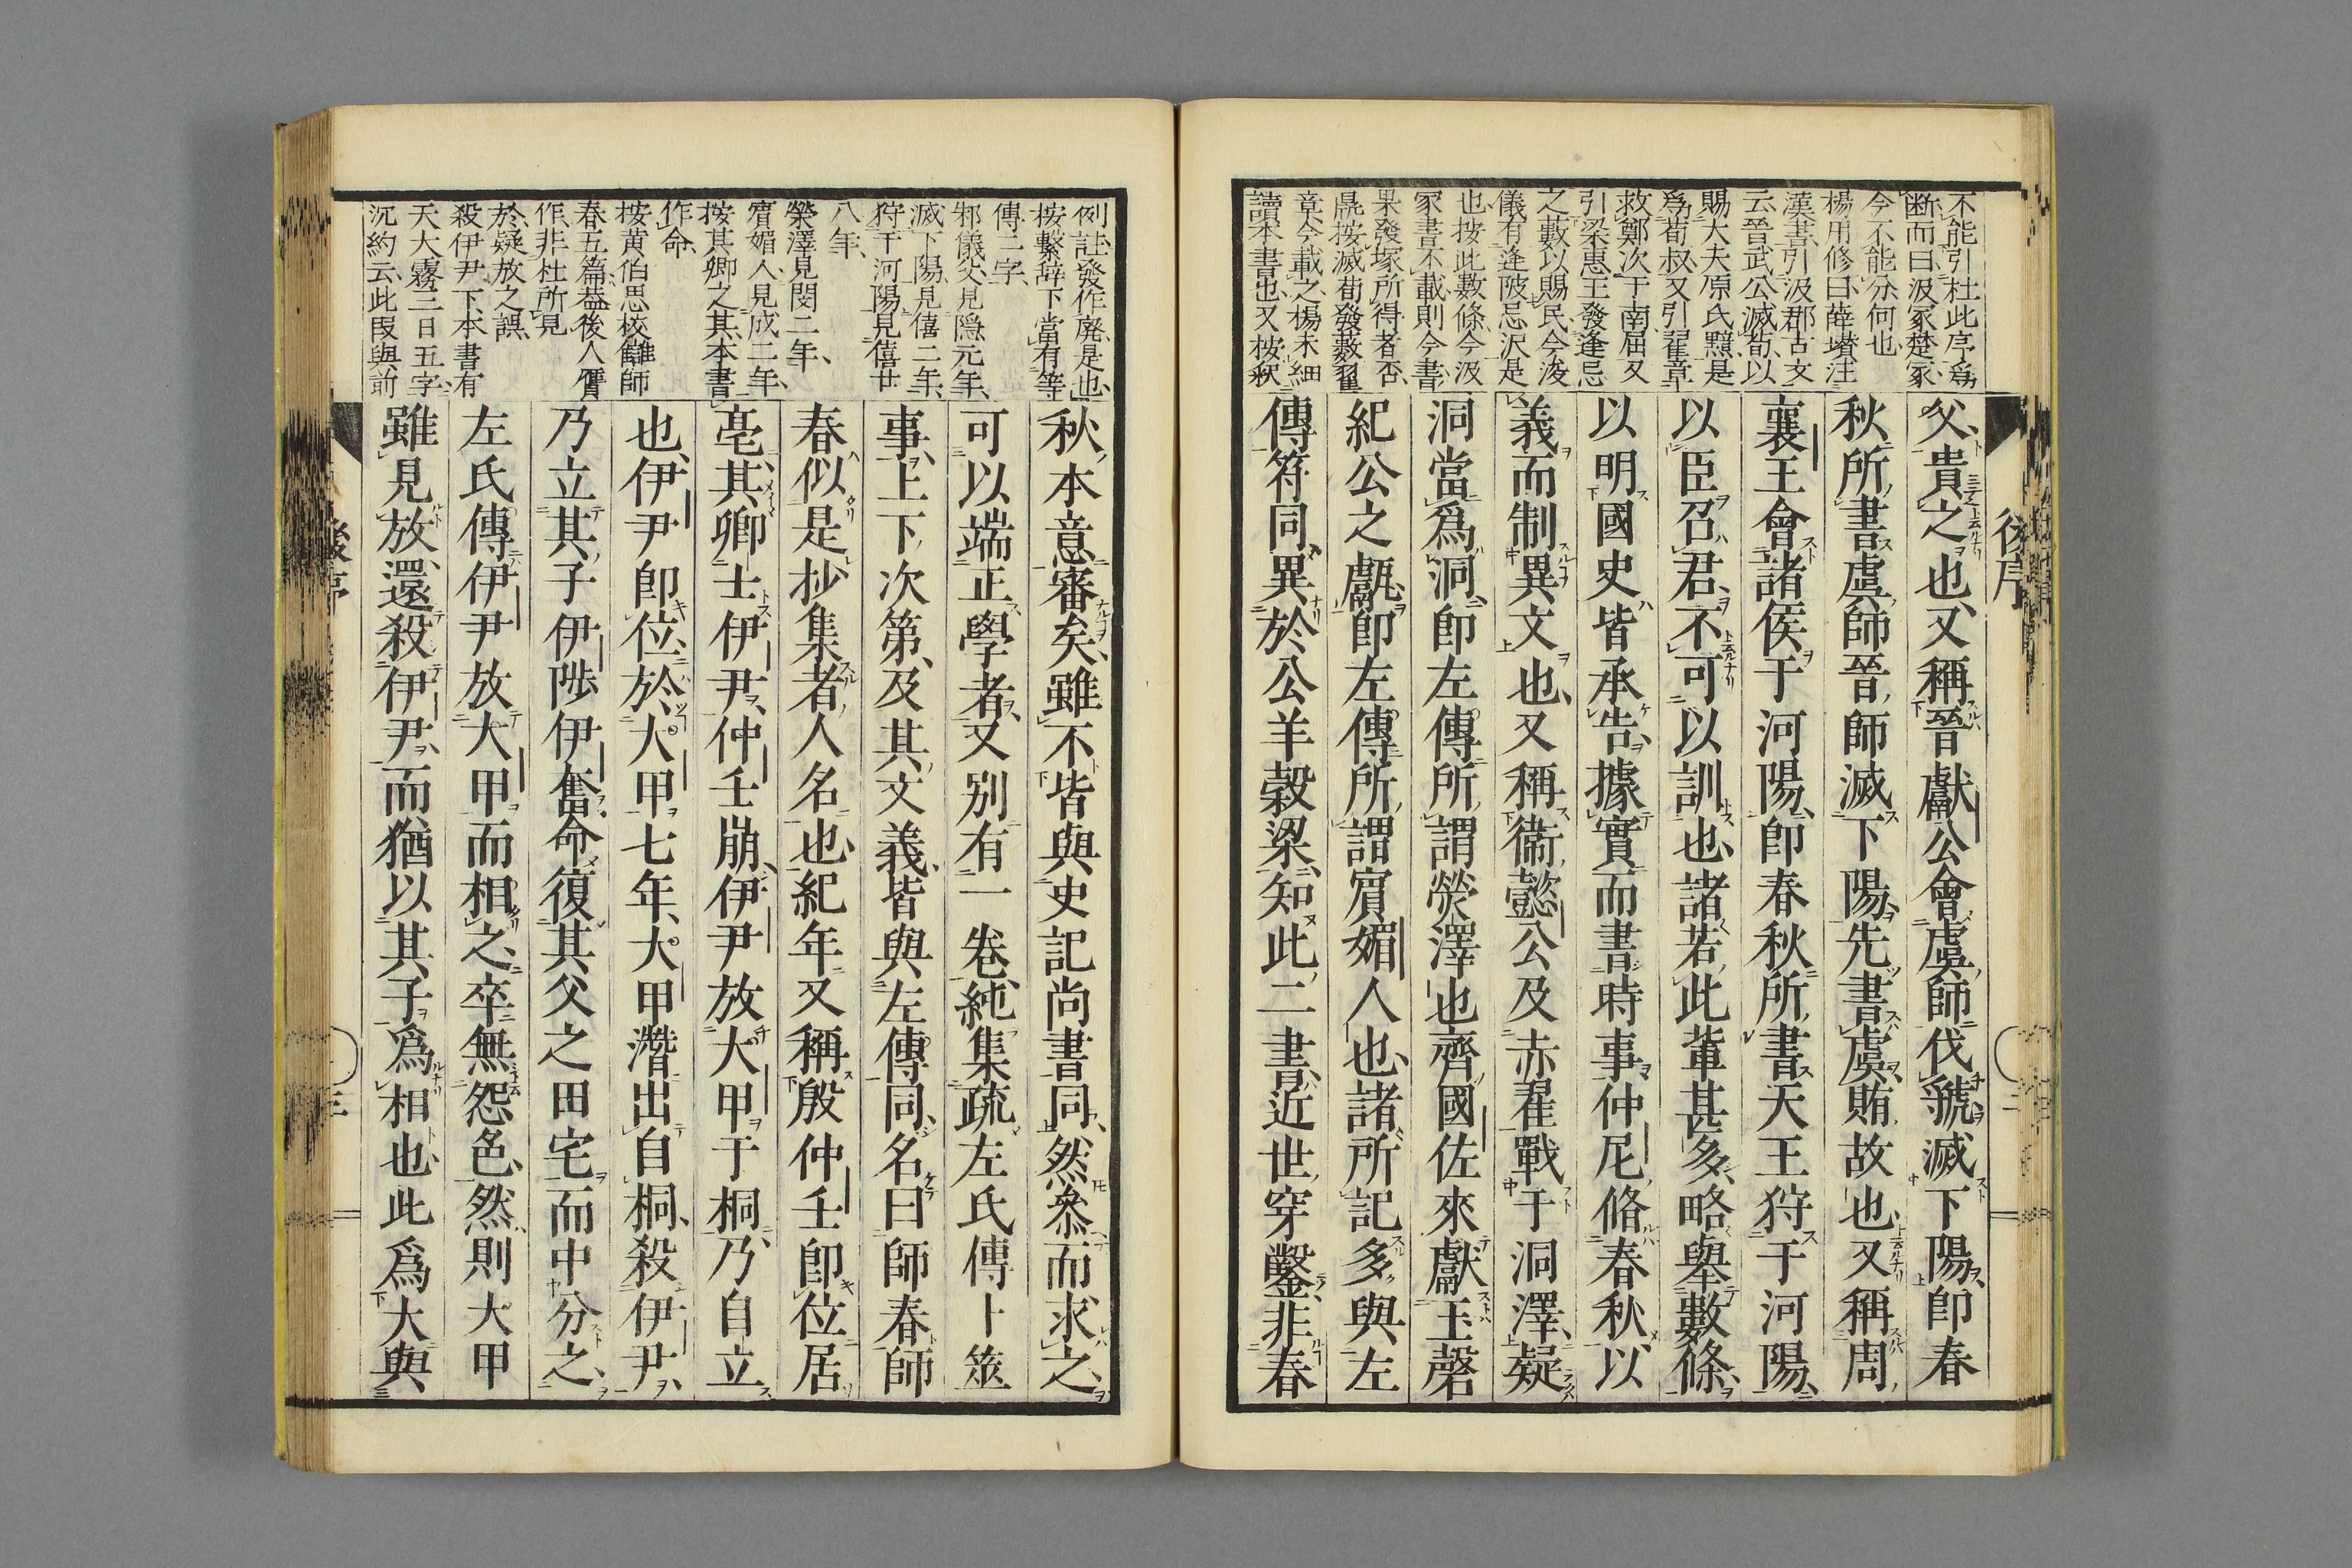 後序
不能引杜此序爲
断而曰汲冢楚冢
今不能分何也
楊用修曰薛瓚注
漢書引汲郡古文
云晉武公滅荀以
賜大夫原氏黯是
爲荀叔又引翟章
救鄭次于南屈又
引梁惠王發逢忌
之藪以賜民今浚
儀有逢陂忌沢是
也按此數條今汲
冢書不載則今書
果發塚所得者否
鼂按滅荀發藪翟
章今載之楊未細
讀本書也又按釈
父貴之也又稱晉獻公會虞師伐虢滅下陽即春
秋所書虞師晉師滅下陽先書虞賄故也又稱周
襄王會諸侯于河陽即春秋所書天王狩于河陽
以臣召君不可以訓也諸若此輩甚多略舉數條
以明國史皆承告據實而書時事仲尼脩春秋以
義而制異文也又稱衞懿公及赤翟戰于洞澤疑
洞當爲泂即左傳所謂熒澤也齊國佐來獻玉磬
紀公之甗即左傳所謂賓媚人也諸所記多與左
傳符同異於公羊穀梁知此二書近世穿鑿非春
例註發作廃是也
按繫辞下當有等
傳二字
邾儀父見隠元年
滅下陽見僖二年
狩于河陽見僖廿
八年
榮澤見閔二年
賓媚人見成二年
按其卿之其本書
作命
按黄伯思校讎師
春五篇蓋後人傳
作非杜所見
於疑放之誤
殺伊尹下本書有
天大霧三日五字
沉約云此叚與前
秋本意審矣雖不皆與史記尚書同然叅而求之
可以端正學者又別有一卷純集疏左氏傳卜筮
事上下次第及其文義皆與左傳同名曰師春師
春似是抄集者人名也紀年又稱殷仲壬即位居
亳其卿士伊尹仲壬崩伊尹放大甲于桐乃自立
也伊尹即位於大甲七年大甲潛出自桐殺伊尹
乃立其子伊陟伊奮命復其父之田宅而中分之
左氏傳伊尹放大甲而相之卒無怨色然則大甲
雖見放還殺伊尹而猶以其子爲相也此爲大與
後序
三